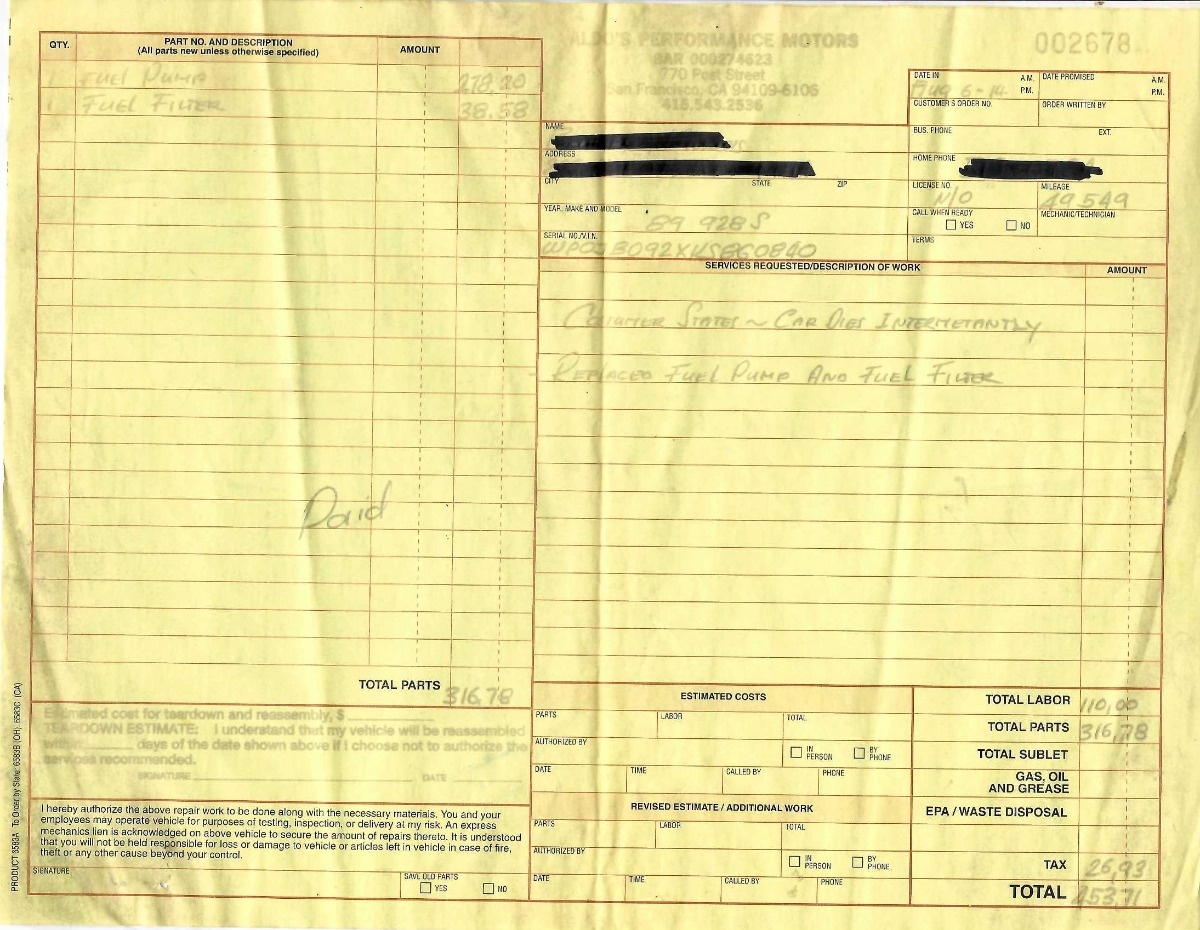 ALDO'S PERFORMANCE MOTORS
BAR 000274623
770 Post Street
San Francisco, CA 94109-6106
415.543.2536
002678
QTY. PART NO. AND DESCRIPTION AMOUNT
(All parts new unless otherwise specified)
1 FUEL PUMP 278.20
1 FUEL FILTER 38.58
Paid
TOTAL PARTS 316.78
DATE IN Aug 6-14 A.M. P.M. DATE PROMISED A.M. P.M.
CUSTOMER'S ORDER NO. ORDER WRITTEN BY
NAME
BUS. PHONE EXT.
ADDRESS
HOME PHONE
CITY STATE ZIP
LICENSE NO. N/O MILEAGE 49549
YEAR, MAKE AND MODEL 89 928 S
CALL WHEN READY YES NO MECHANIC/TECHNICIAN
SERIAL NO./V.I.N. WP0JB092XKS860840
TERMS
SERVICES REQUESTED/DESCRIPTION OF WORK AMOUNT
STATES ~ CAR DIES INTERMETANTLY
- REPLACED FUEL PUMP AND FUEL FILTER
Estimated cost for teardown and reassembly, $
TEARDOWN ESTIMATE: I understand that my vehicle will be reassembled
within days of the date shown above if I choose not to authorize the
services recommended.
SIGNATURE DATE
I hereby authorize the above repair work to be done along with the necessary materials. You and your
employees may operate vehicle for purposes of testing, inspection, or delivery at my risk. An express
mechanics lien is acknowledged on above vehicle to secure the amount of repairs thereto. It is understood
that you will not be held responsible for loss or damage to vehicle or articles left in vehicle in case of fire,
theft or any other cause beyond your control.
SIGNATURE
SAVE OLD PARTS
YES NO
ESTIMATED COSTS
PARTS LABOR TOTAL
AUTHORIZED BY IN PERSON BY PHONE
DATE TIME CALLED BY PHONE
REVISED ESTIMATE / ADDITIONAL WORK
PARTS LABOR TOTAL
AUTHORIZED BY IN PERSON BY PHONE
DATE TIME CALLED BY PHONE
TOTAL LABOR 110,00
TOTAL PARTS 316,78
TOTAL SUBLET
GAS, OIL
AND GREASE
EPA / WASTE DISPOSAL
TAX 26,93
TOTAL 453,71
PRODUCT 6583A To Order by State: 6583B (OH); 6583C (CA)